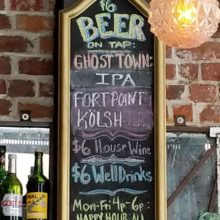 $6
BEER
ON TAP:
GHOST TOWN:
IPA
FORT POINT
KÖLSH
$6 House Wine
$6 Well Drinks
Mon-Fri 4p-6p:
HAPPY HOUR ALL